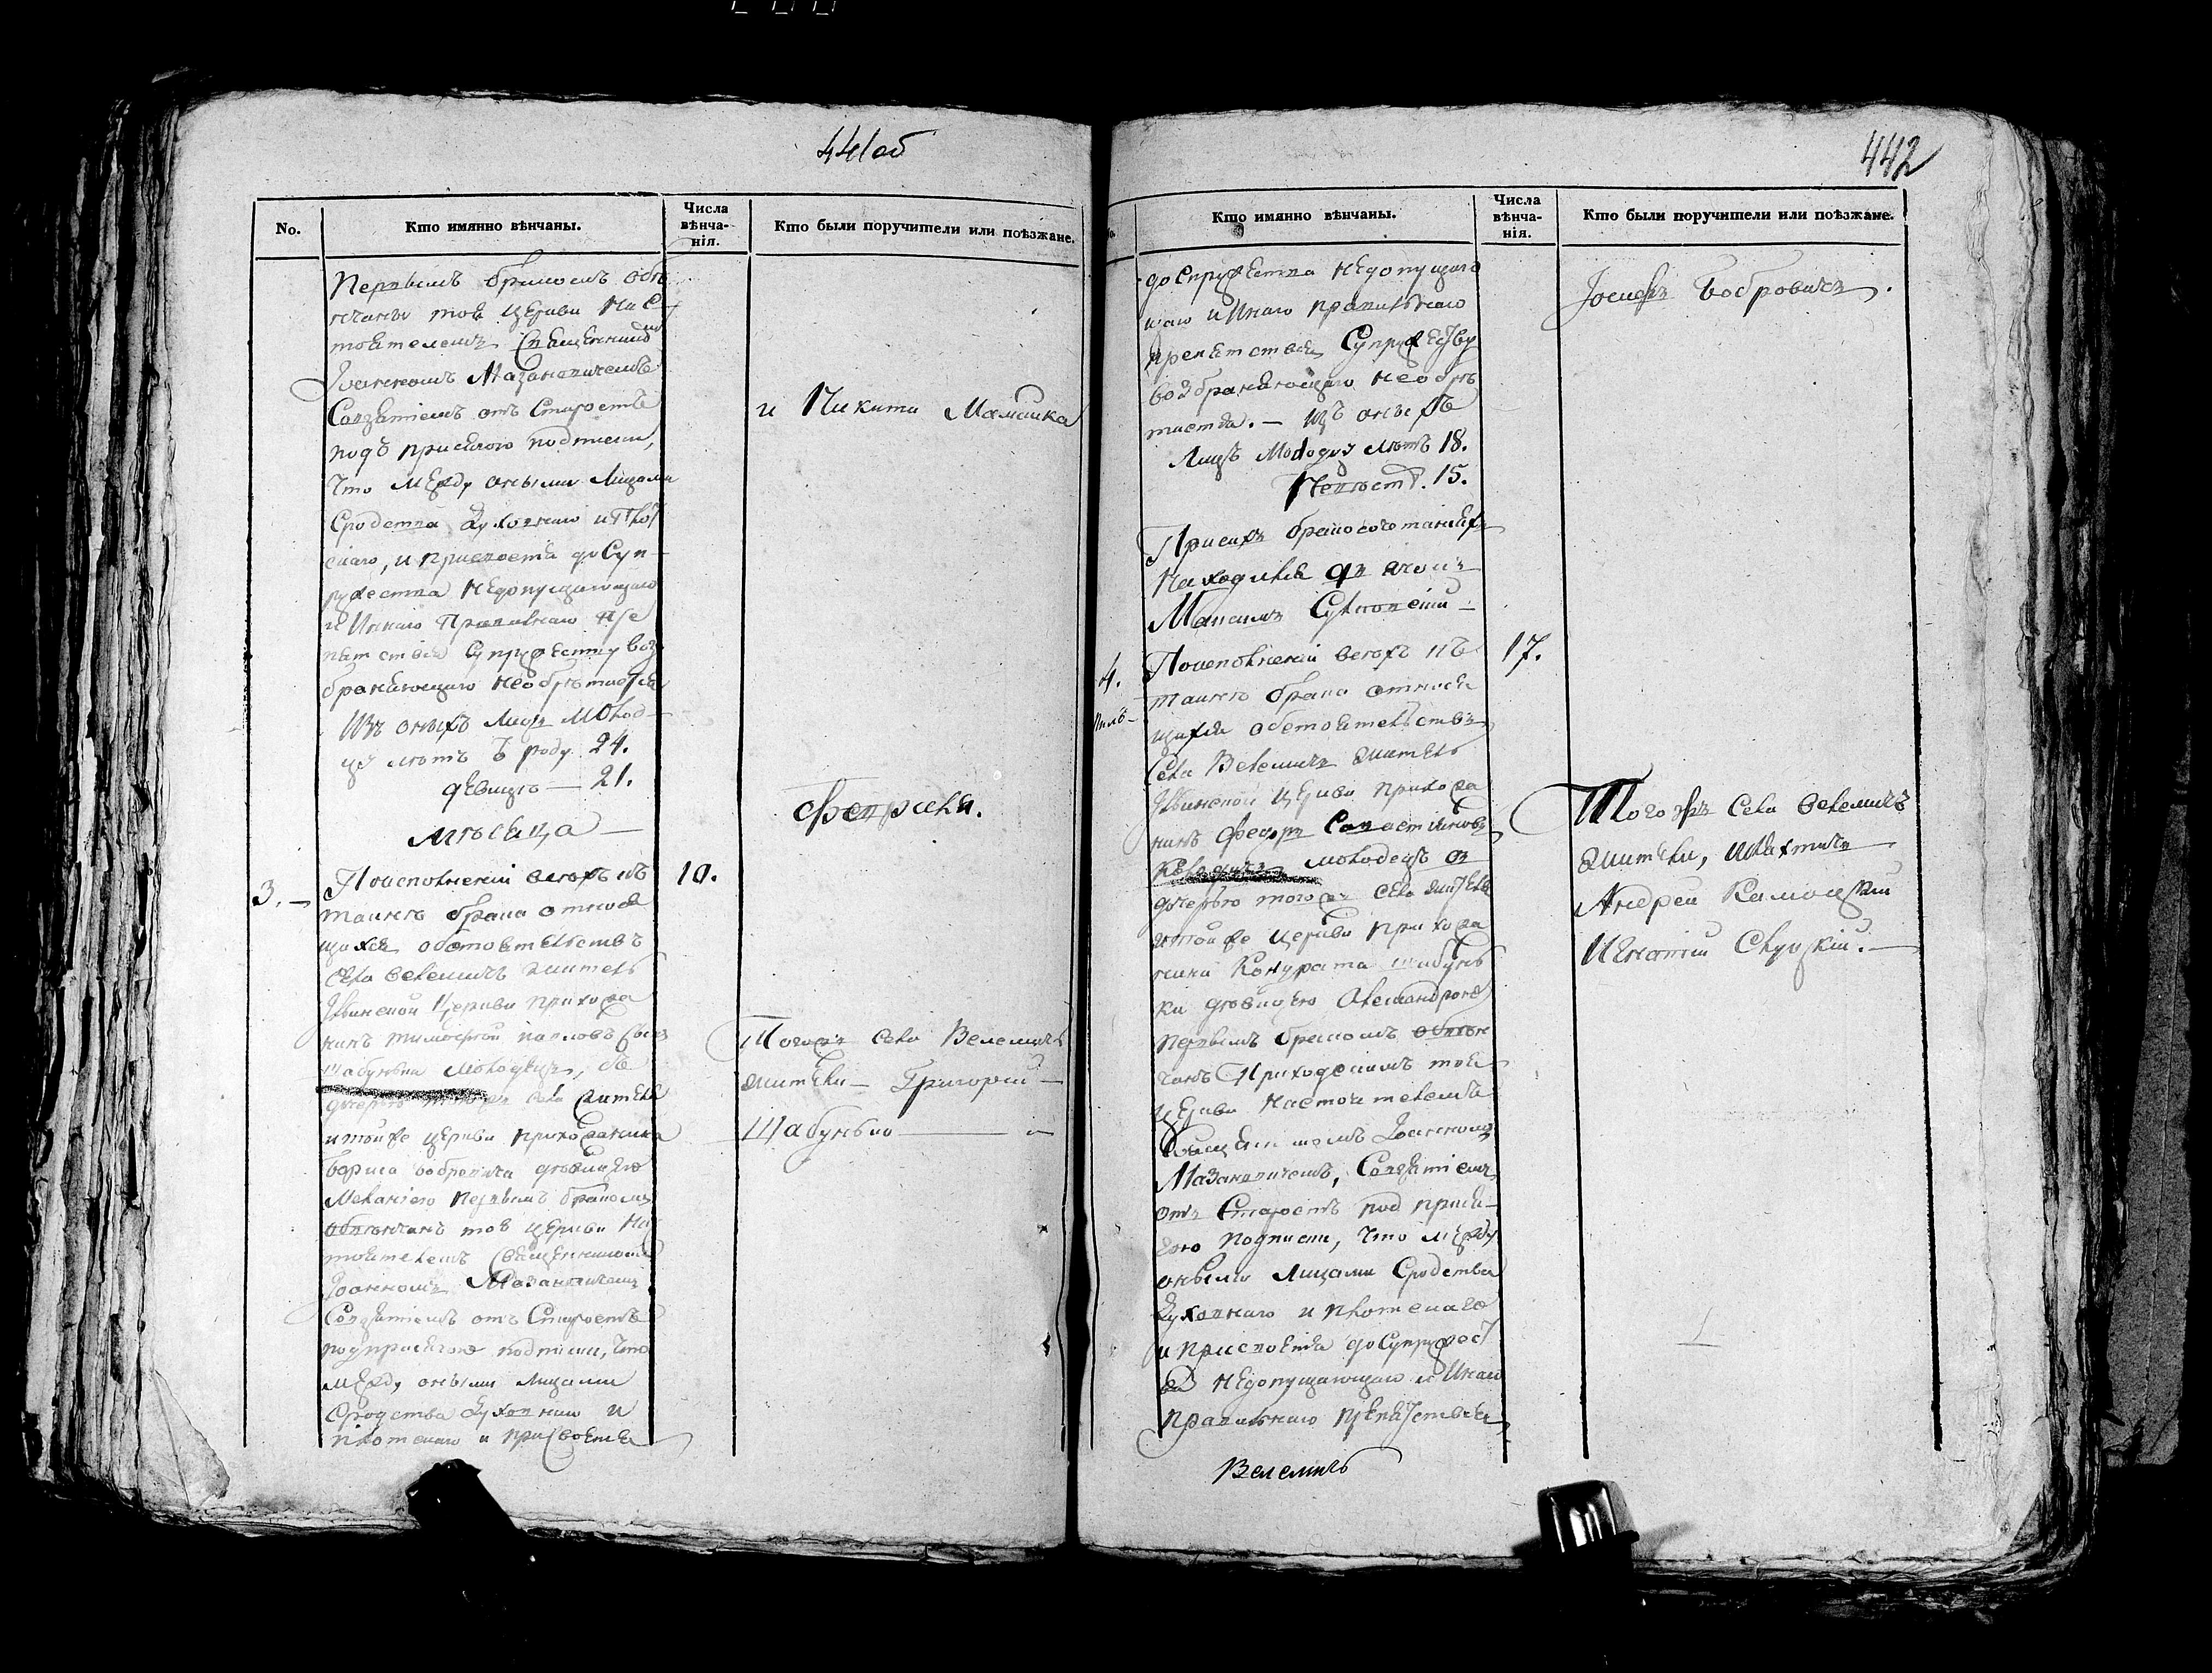 441об
No.
Кто имянно вѣнчаны.
Числа
вѣнча-
нія.
Кто были поручители или поѣзжане.
Первымъ бракомъ обвѣ
нчаны тоя Церкви Нас
тоятелемъ Священником
Іоанномъ Мазановичемъ
Совзятіемъ отъ Старостъ
подъ присягою подписки,
Что между оными лицами
Сродства духовнаго и плот
скаго, и присвоства до Суп
ружества недопущающаго
и Инаго Правилнаго пре
пятствія Супружеству воз
браняющаго необрѣтается
Изъ оныхъ лицъ молод
цу лѣтъ ѿ роду 24.
девицѣ — 21.
и Никита Мамайка
мѣсяца —
февраля.
3. —
Поисполненіи всехъ къ
таинѣ брака относя
щихся обстоятельствъ
села велемичъ житель
Ильинской Церкви прихожа
нинъ тимофей павловъ сынъ
шабунька молодецъ, съ
дочерью тогожъ села жителя
итойже Церкви прихожанина
бориса бобровича девицею
Меланіею первымъ бракомъ
обвѣнчанъ тоя Церкви Нас
тоятелемъ Священникомъ
Іоанномъ Мазановичемъ
Совзятіемъ отъ Старостъ
подприсягою подписки, Что
между оными лицами
Сродства духовнаго и
плотскаго и присвоства
10.
Тогожъ села Велемичъ
жители — Григорій —
Шабунько
442
Кто имянно вѣнчаны.
Числа
вѣнча-
нія.
Кто были поручители или поѣзжане.
до Супружества недопущаю
щаго и Инаго правилнаго
препятствія Супружеству
возбраняющаго необрѣ
тается. — Изъ оныхъ
Лицъ Молодцу лѣтъ 18.
Невѣстѣ. 15.
Присихъ бракосочетаніях
Находился дьячокъ
Максимъ
Іосифъ Бобровичъ.
4.
Поисполненіи всехъ къ
таинѣ брака относя
щихся обстоятельствъ
Села Велемичъ житель
Ильинской Церкви прихожа
нинъ федоръ Савастіяновъ
молодецъ съ
дочерью тогожъ села жителя
итойже Церкви прихожа
нина Кондрата шабунь
ки девицею Александрою
первымъ бракомъ обвѣн
чанъ Приходскимъ тоя
Церкви Настоятелемъ
Священникомъ Іоанномъ
Мазановичемъ, Совзятіемъ
отъ Старостъ под прися
гою подписки, Что между
оными Лицами Сродства
духовнаго и плотскаго
и присвоства до Супружест
ва недопущающаго и Инаго
правилнаго препятствія
17.
Тогожъ села велемичъ
жители, шляхтичи
Андрей Камоцкій
Игнатій Слуцкій. —
Велемичъ